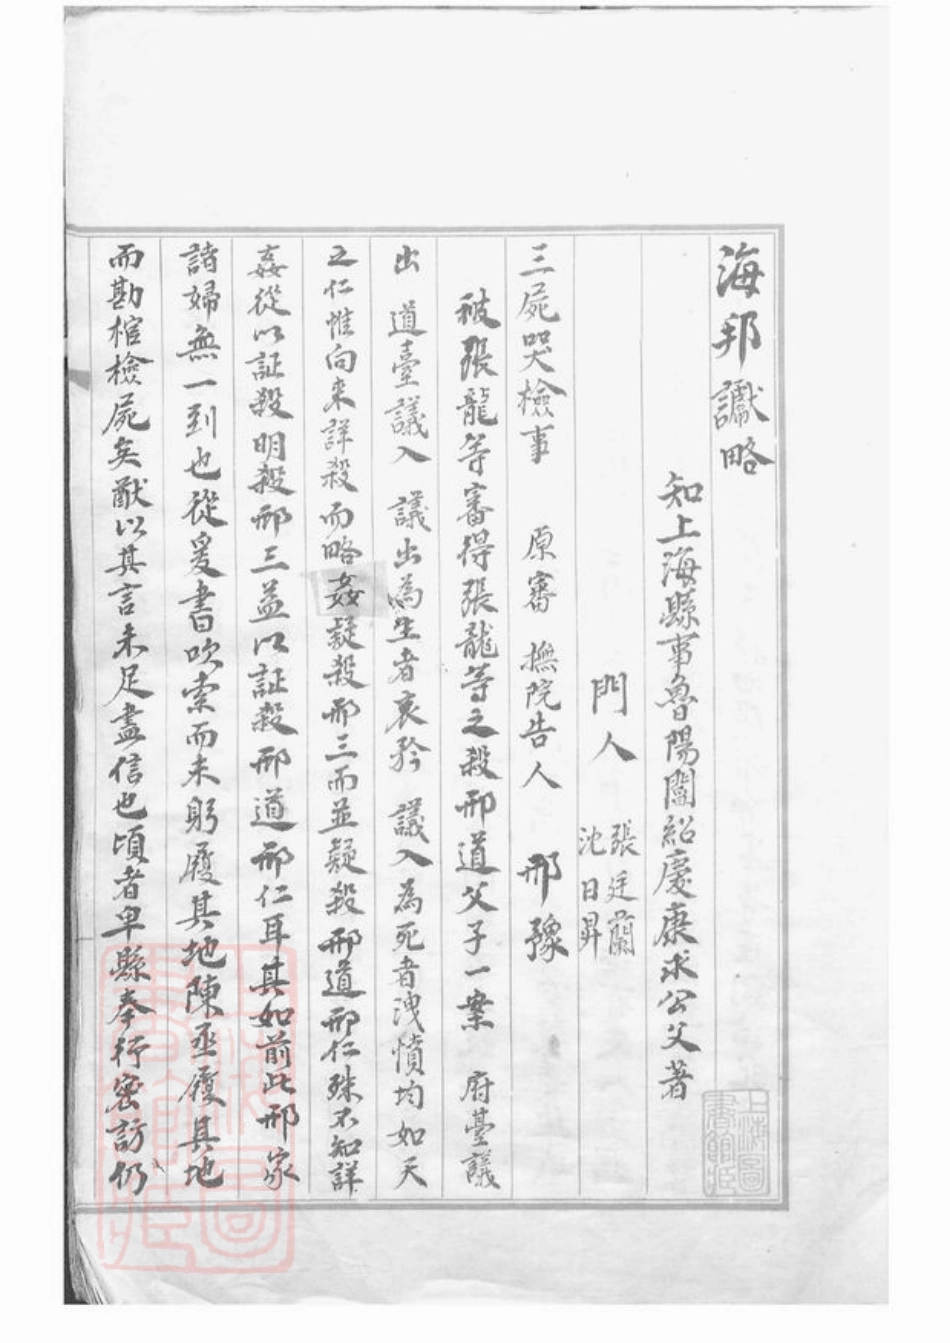 海邦讞略
知上海縣事魯陽閻紹慶康求公父著
門人 張廷蘭
沈日昇
三屍哭檢事 原審 撫院告人 邢豫
被張龍等審得張龍等之殺邢道父子一案 府臺議
出 道臺議入 議出為生者哀矜 議入為死者洩憤均如天
之仁惟向来詳殺而略姦疑殺邢三而並疑殺邢道邢仁殊不知詳
姦從以証殺明殺邢三益以証殺邢道邢仁耳其如前此邢家
諸婦無一到也從爰書吹索而未躬履其地陳丞履其地
而勘棺檢屍矣猷以其言未足盡信也頃者卑縣奉行密訪仍
上海圖書館藏